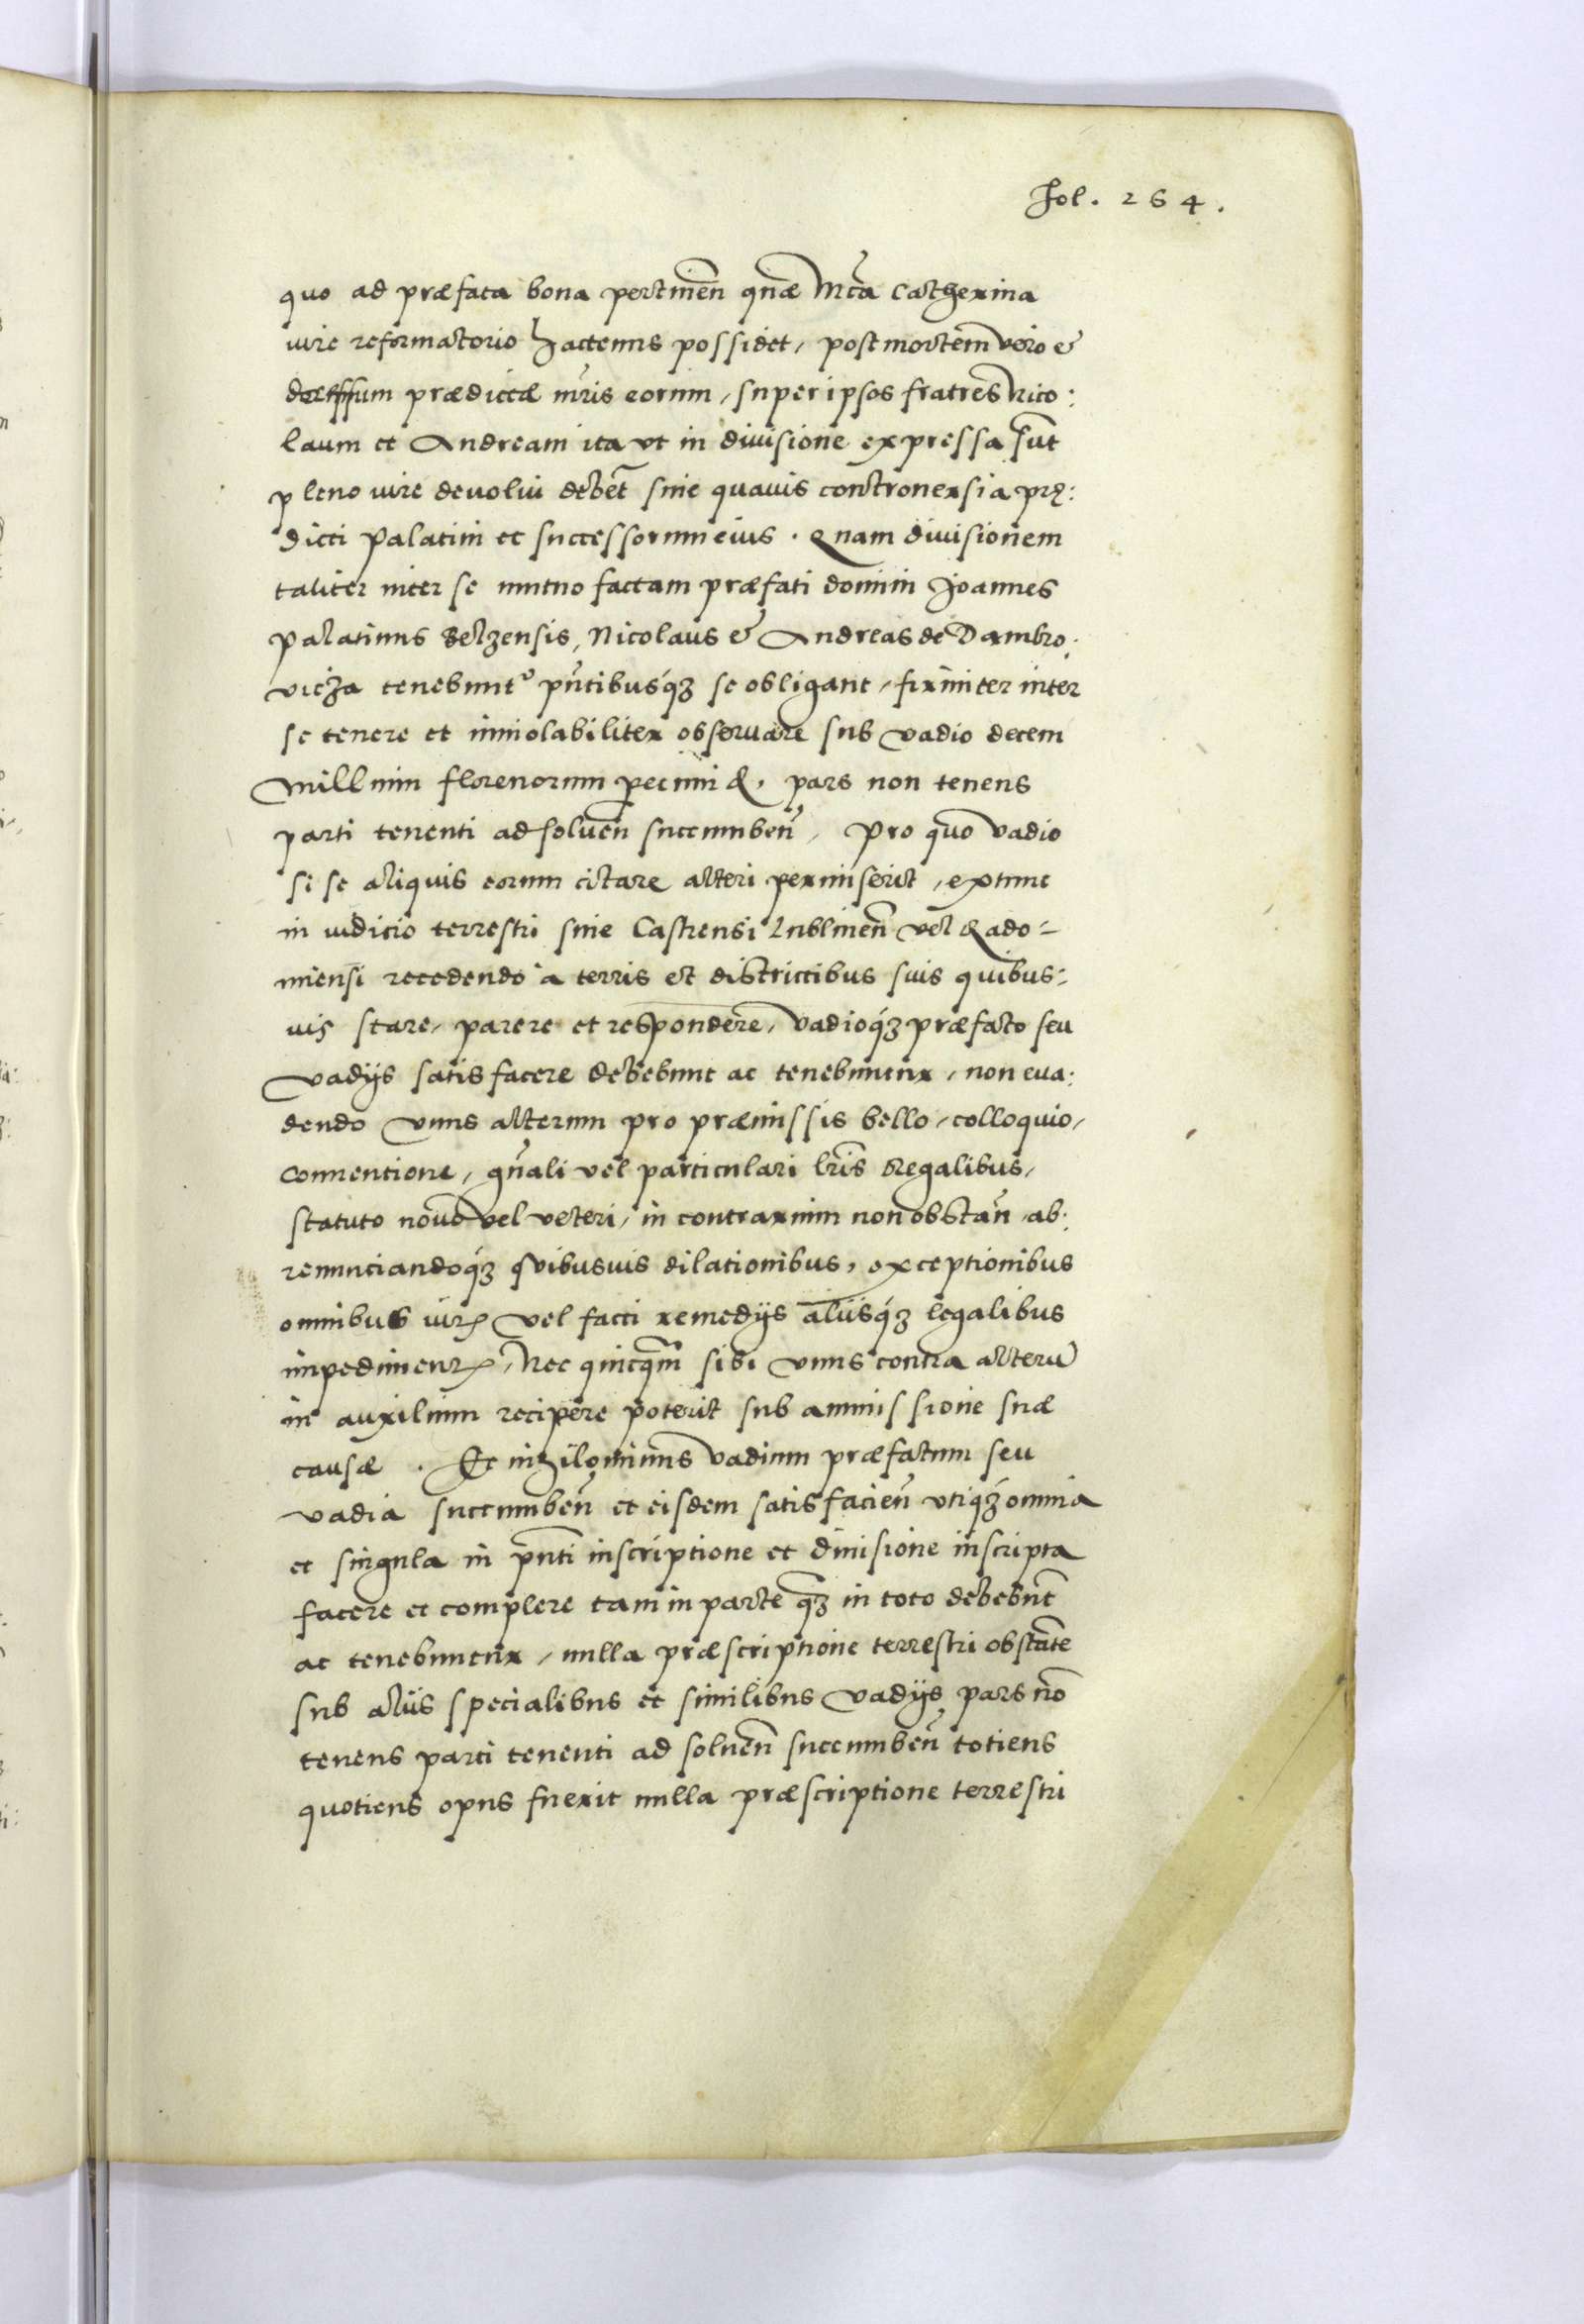 Fol. 264.
quo ad præfata bona pertineñ quæ Mca Catherina
iure reformatorio hactenus possidet, post mortem vero et
decessum prædictæ mris eorum, super ipsos fratres Nico:
laum et Andream ita vt in diuisione expressa sunt
pleno iure deuolui debet siue quauis controuersia prę:
dicti Palatini et successorum eius. Quam diuisionem
taliter inter se mutuo factam præfati domini Joannes
Palatinus Belzensis, Nicolaus et Andreas de Dambro:
vicza tenebuntur pntibusq3 se obligant, firmiter inter
se tenere et inuiolabiliter obseruare sub vadio decem
Millium florenorum pecuniæ, pars non tenens
parti tenenti ad soluen̄ succumbeñ, Pro quo vadio
si se aliquis eorum citare alteri permiserit, extunc
in iudicio terrestri siue Castrensi Lublineñ vel Rado=
miensi recedendo a terris et districtibus suis quibus=
uis stare, parere et respondere, vadioq3 præfato seu
vadijs satisfacere debebunt ac tenebuntur, non eua:
dendo vnus alterum pro præmissis bello, colloquio,
Conuentione, gnali vel particulari lris Regalibus,
statuto nouo vel veteri, in contrarium non obstañ ab:
renunciandoq3 quibusuis dilationibus, exceptionibus
omnibus iur. vel facti remedijs alijsq3 legalibus
impediment. Nec quicqm sibi vnus contra alteru
in auxilium recipere poterit sub ammissione suæ
causæ. Et nihilominus vadium præfatum seu
vadia succumbeñ et eisdem satisfacieñ vtiq3 omnia
et singula in pnti inscriptione et diuisione inscripta
facere et complere tam in parte q3 in toto debebnt
ac tenebuntur, nulla præscriptione terrestri obstate
sub alijs specialibus et similibus vadijs pars no
tenens parti tenenti ad solueñ succumbeñ totiens
quotiens opus fuerit nulla præscriptione terrestri